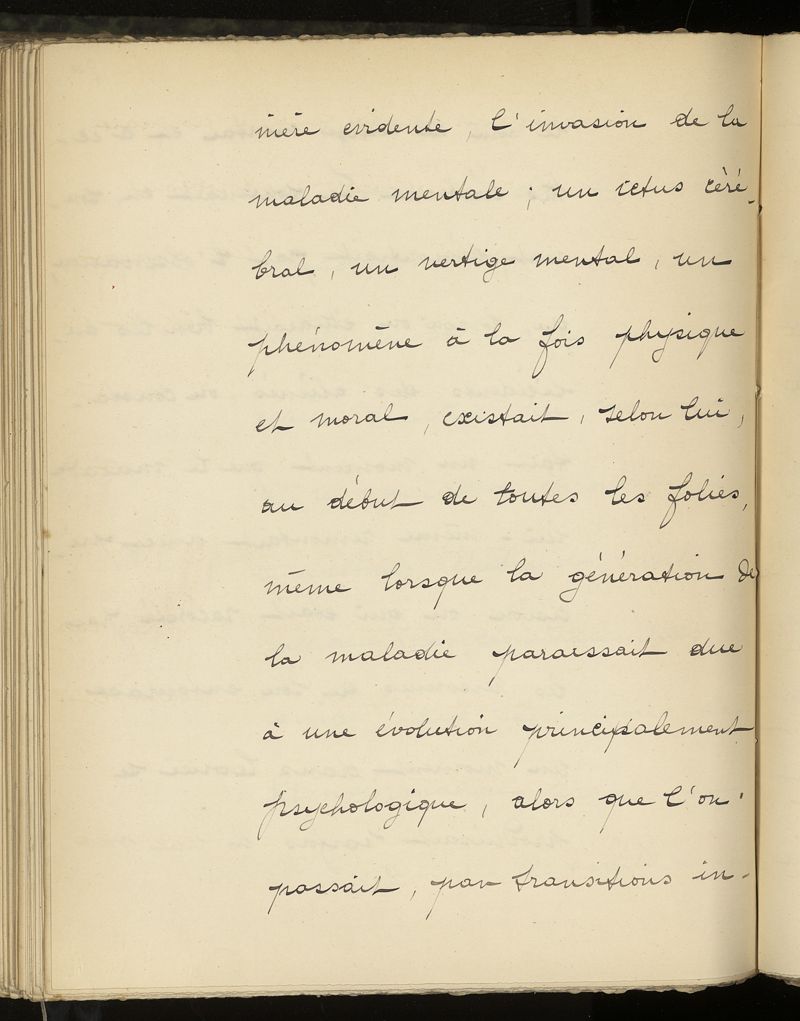 mère evidente, l'invasion de la
maladie mentale ; un ictus céré-
bral, un vertige mental, un
phénomène à la fois physique
et moral, existait, selon lui,
au début de toutes les folies,
même lorsque la génération de
la maladie paraissait due
à une évolution principalement
psychologique, alors que l'on
passait, par transitions in-